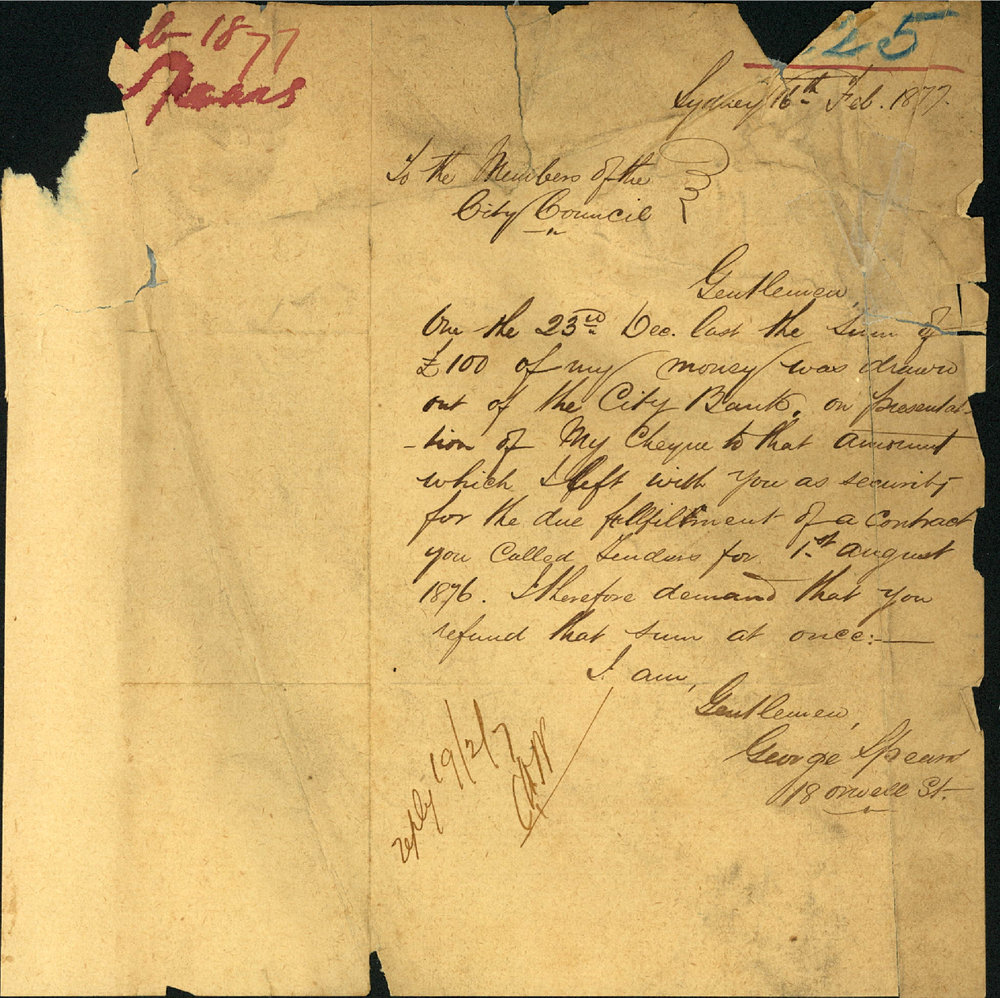 b 1877
Spears
225
Sydney 16th Feb. 1877.
To the Members of the
City Council
Gentlemen,
On the 23rd Dec. last the sum of
£100 of my money was drawn
out of the City Bank, on presentat-
-tion of My Cheque to that amount
which I left with You as security
for the due fullfillment of a contract
you Called Tenders for 1st August
1876. I therefore demand that you
refund that sum at once:—
I am,
Gentlemen,
George Spears
18 Orwell St.
reply 19/2/7